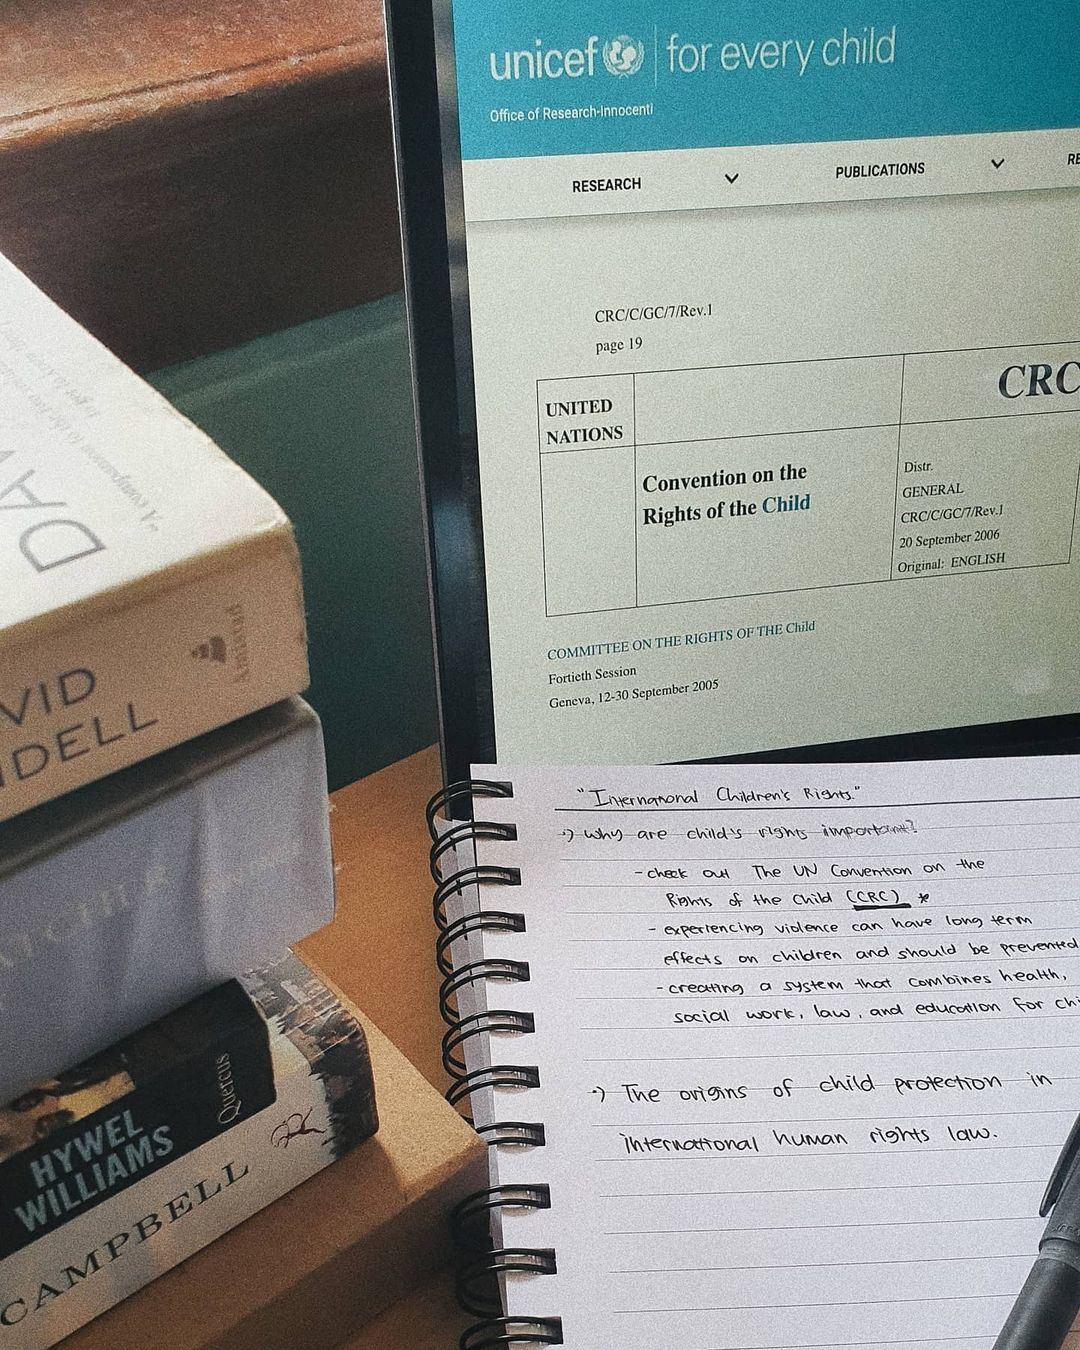 unicef for every child
Office of Research-Innocenti
RESEARCH PUBLICATIONS RE
CRC/C/GC/7/Rev.1
page 19
UNITED
NATIONS
CRC
Convention on the
Rights of the Child
Distr.
GENERAL
CRC/C/GC/7/Rev.1
20 September 2006
Original: ENGLISH
COMMITTEE ON THE RIGHTS OF THE Child
Fortieth Session
Geneva, 12-30 September 2005
"International Children's Rights."
·) why are child's rights important?
- check out The UN Convention on the
Rights of the Child (CRC) *
- experiencing violence can have long term
effects on children and should be prevented
- creating a system that combines health,
social work, law, and education for chi
·) The origins of child protection in
international human rights law.
DA
VID
DELL
HYWEL
WILLIAMS
Quercus
CAMPBELL